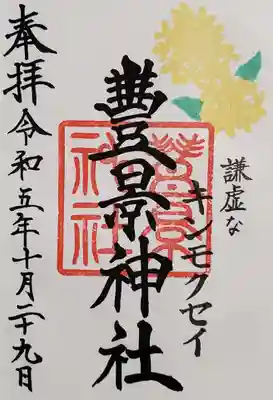 謙虚な
キンモクセイ
豊景神社
豊景神社
奉拝 令和五年十月二十九日